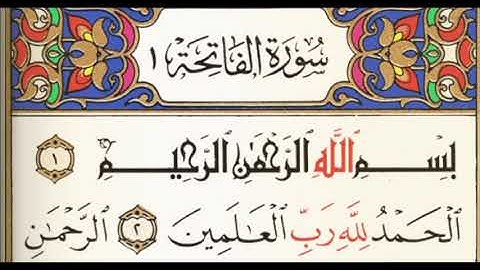 سُورَةُ الفَاتِحَة ١
بِسْمِ ٱللَّهِ ٱلرَّحْمَٰنِ ٱلرَّحِيمِ ١
ٱلْحَمْدُ لِلَّهِ رَبِّ ٱلْعَالَمِينَ ٢ ٱلرَّحْمَٰنِ